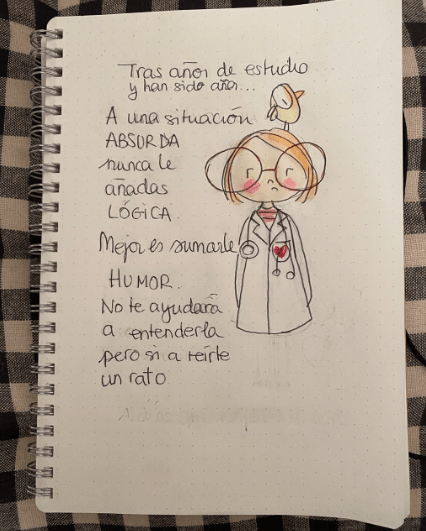 Tras años de estudio
y han sido años...
A una situación
ABSURDA
nunca le
añadas
LÓGICA.
Mejor es sumarle
HUMOR.
No te ayudará
a entenderla
pero si a reírte
un rato